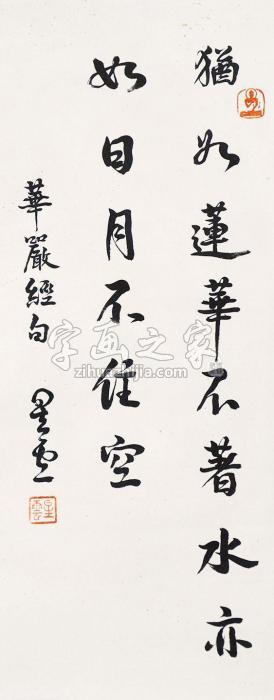 猶如蓮華不著水亦
如日月不住空
華嚴經句 星雲
星雲
字画之家
zihuazhijia.com